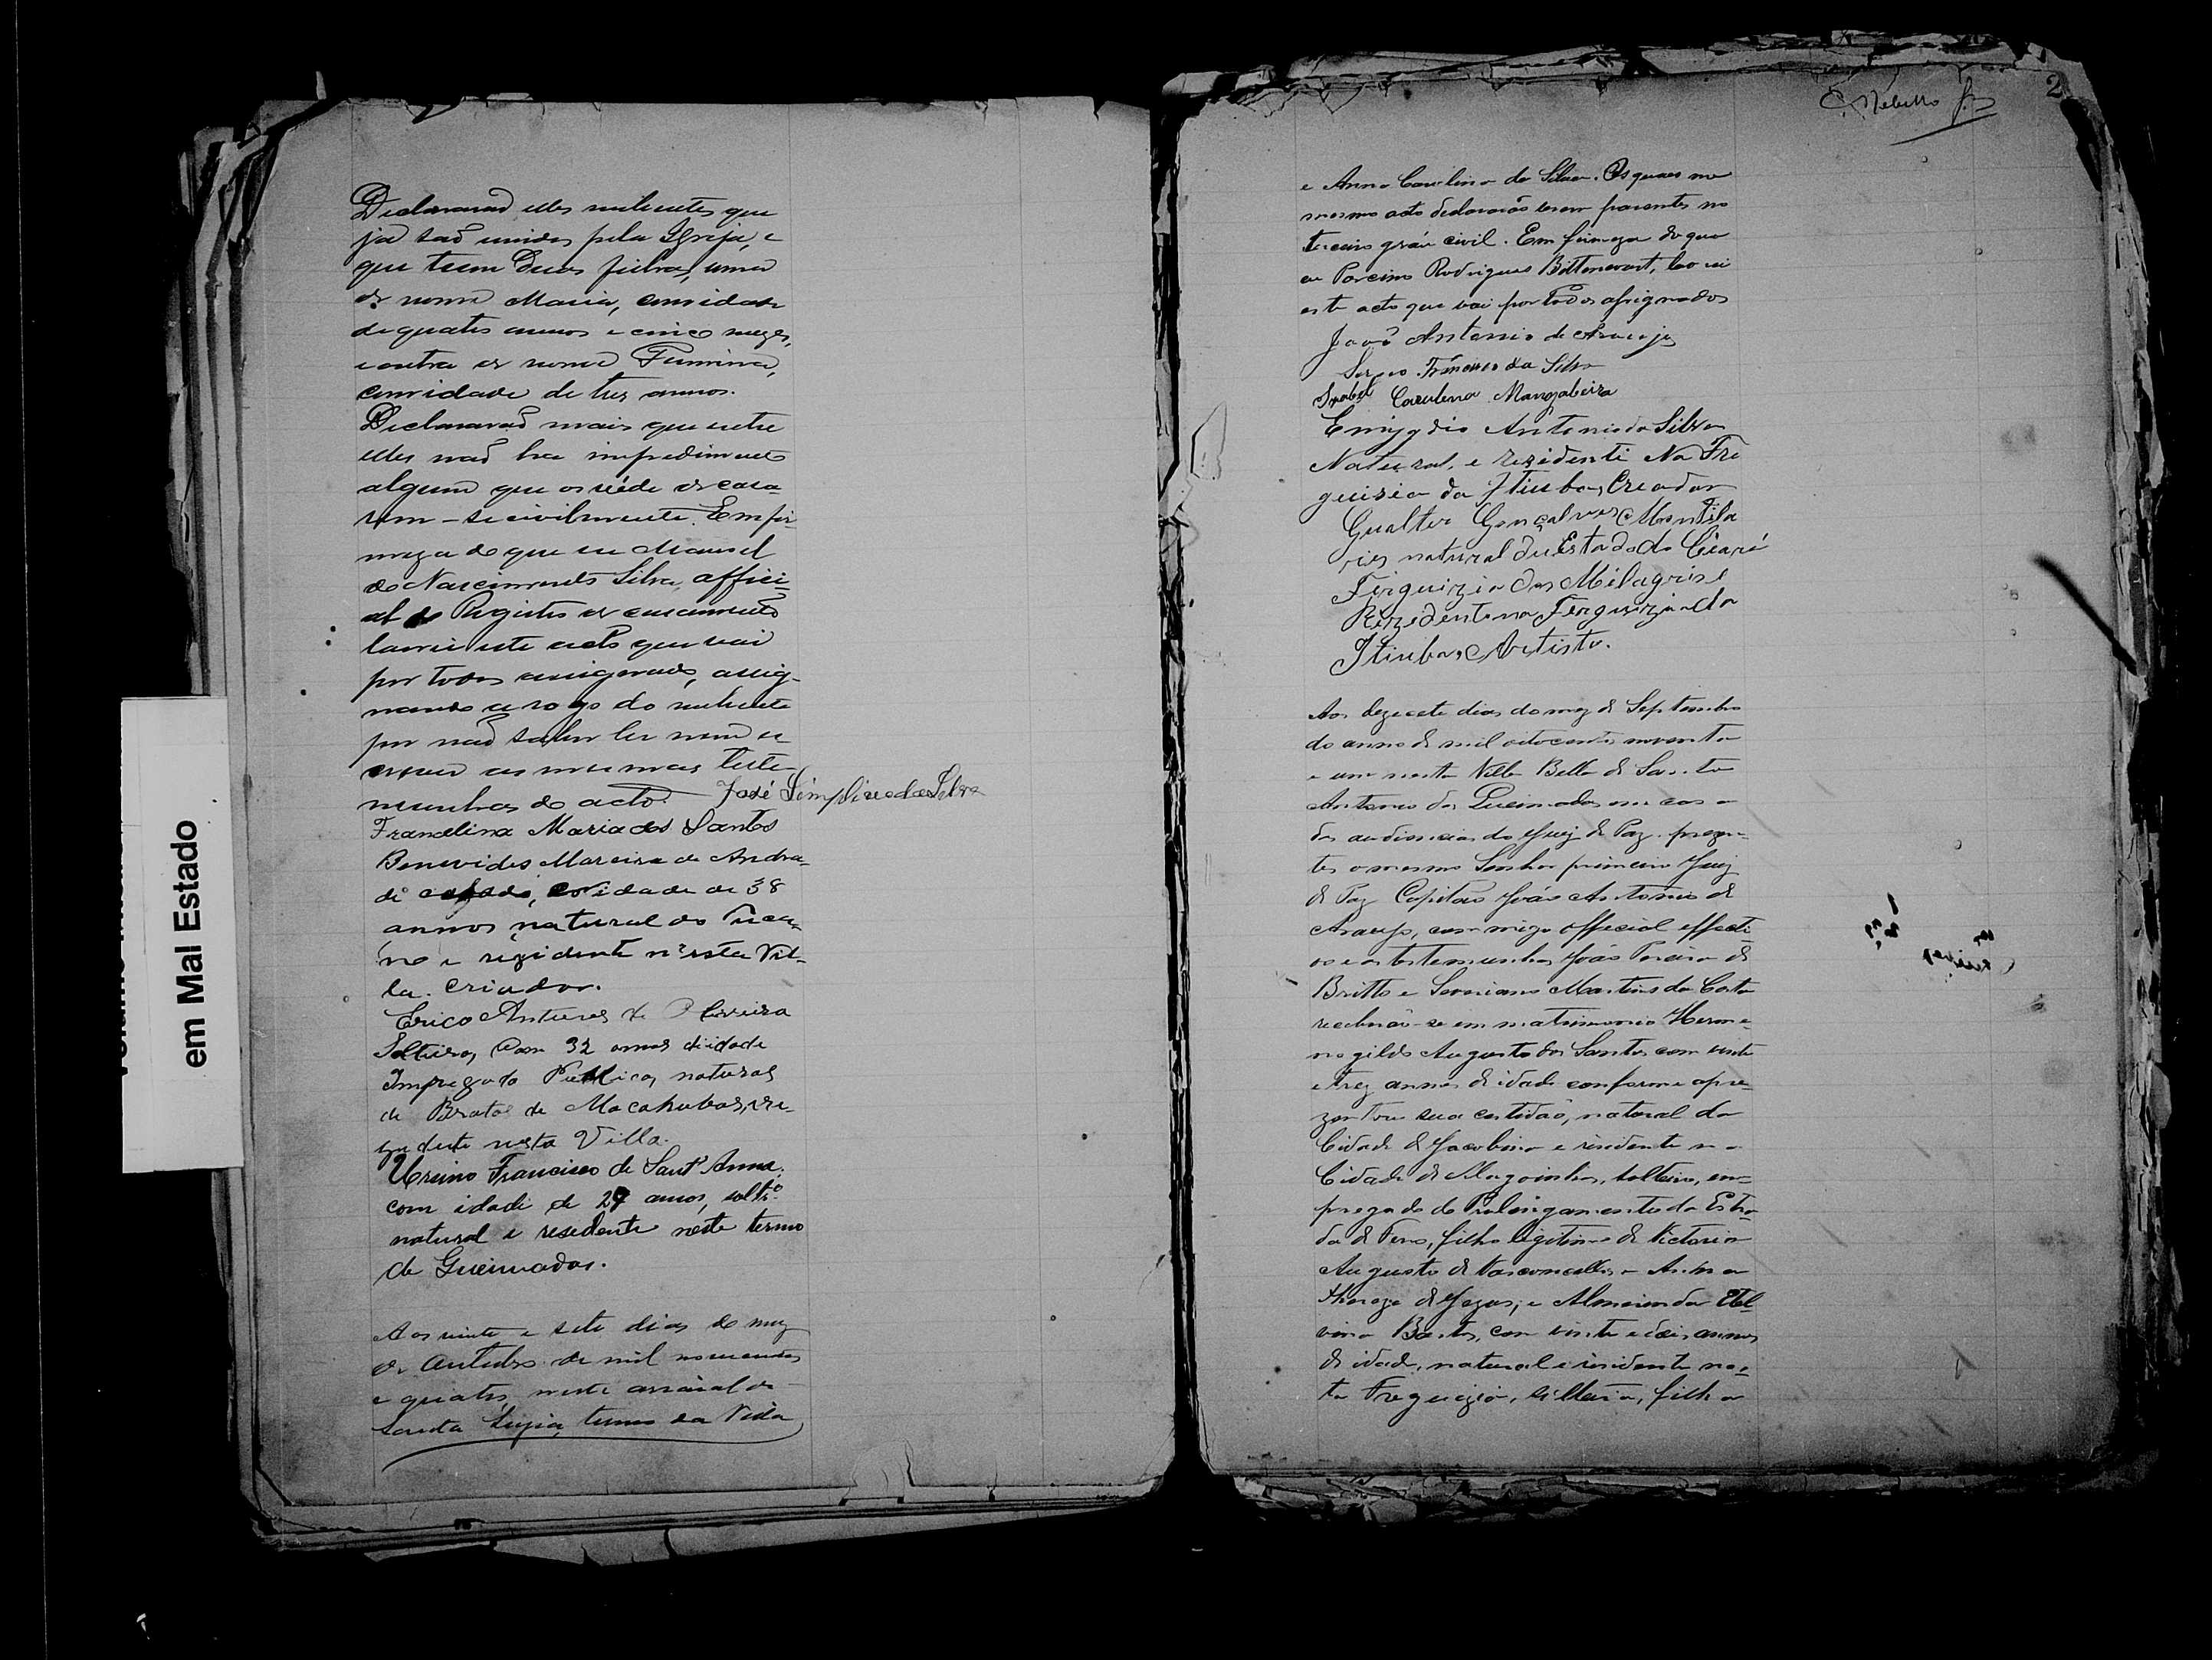 em Mal Estado
Declararaõ elles nubentes que
já saõ unidos pela Igreja, e
que teem duas filhas, uma
de nome Maria, com idade
de quatro annos e cinco mezes,
e outra de nome Firmina,
com idade de tres annos.
Declararaõ mais que entre
elles naõ ha impedimento
algum que os de casa-
rem-se civilmente. Em fir-
meza do que eu Manoel
do Nascimento Silva, offici-
al do Registro de casamento
lavrei este acto que vai
por todos assignado, assig-
nando a rogo do nubente
por naõ saber ler nem es
crever as mesmas teste-
munhas do acto. José Simplicio da Silva
Francelina Maria dos Santos
Benevides Moreira de Andra-
de casado, com idade de 38
annos natural do Tuca-
no e rezidente n'esta Vil-
la. Criador.
Erico Antunes de Oliveira
Solteiro, com 32 annos de idade
Impregado Publico, natural
de Brotas de Macahubas, re-
zidente nesta Villa.
Ursino Francisco de Sant'Anna,
com idade de 27 annos, soltrº
natural e residente neste termo
de Queimadas.
Aos vinte e sete dias do mez
de Outubro de mil novecentos
e quatro, neste arraial de
Santa Luzia, termo da Villa
2
C. Rebello
e Anna Carolina da Silva. Os quaes no
mesmo acto declararaõ serem parentes no
terceiro gráu civil. Em firmeza do que
eu Porcino Rodrigues Bittencourt, lavrei
este acto que vai por todos assignados
Joaõ Antonio de Araujo
Sergio Francisco da Silva
Isabel Carulena Mangabeira
Emygdio Antonio da Silva
Natural, e rezidente Na Fre
guisia da Itiuba, Creador
Gualter Gonçalves Montila
natural du Estado do Ceará
Ferguizia dos Milagris e
Rezidente na Ferguizia da
Itiuba, Artista.
Aos dezecete dias do mez de Septembro
do anno de mil oitocentos noventa
e um nesta Villa Bella de Santo
Antonio das Queimadas em casa
das audiencias do Juiz de Paz prezen-
tes o mesmo Senhor primeiro Juiz
de Paz Capitão João Antonio de
Araujo, commigo official effecti
vo e as testemunhas João Pereira de
Britto e Severiano Martins da Costa
receberão-se em matrimonio Herme-
negildo Augusto dos Santos com vinte
e trez annos de idade conforme apre-
zentou sua certidaõ, natural da
Cidade de Jacobina e residente na
Cidade de Alagoinhas, solteiro, em-
pregado do Prolongamento da Estra-
da de Ferro, filho legitimo de Victorio
Augusto de Vasconcellos e Anna
Thereza de Jezus, e Almerinda Etel
vina Bastos, com vinte e dois annos
de idade, natural e residente nes-
ta Freguezia, solteira, filha